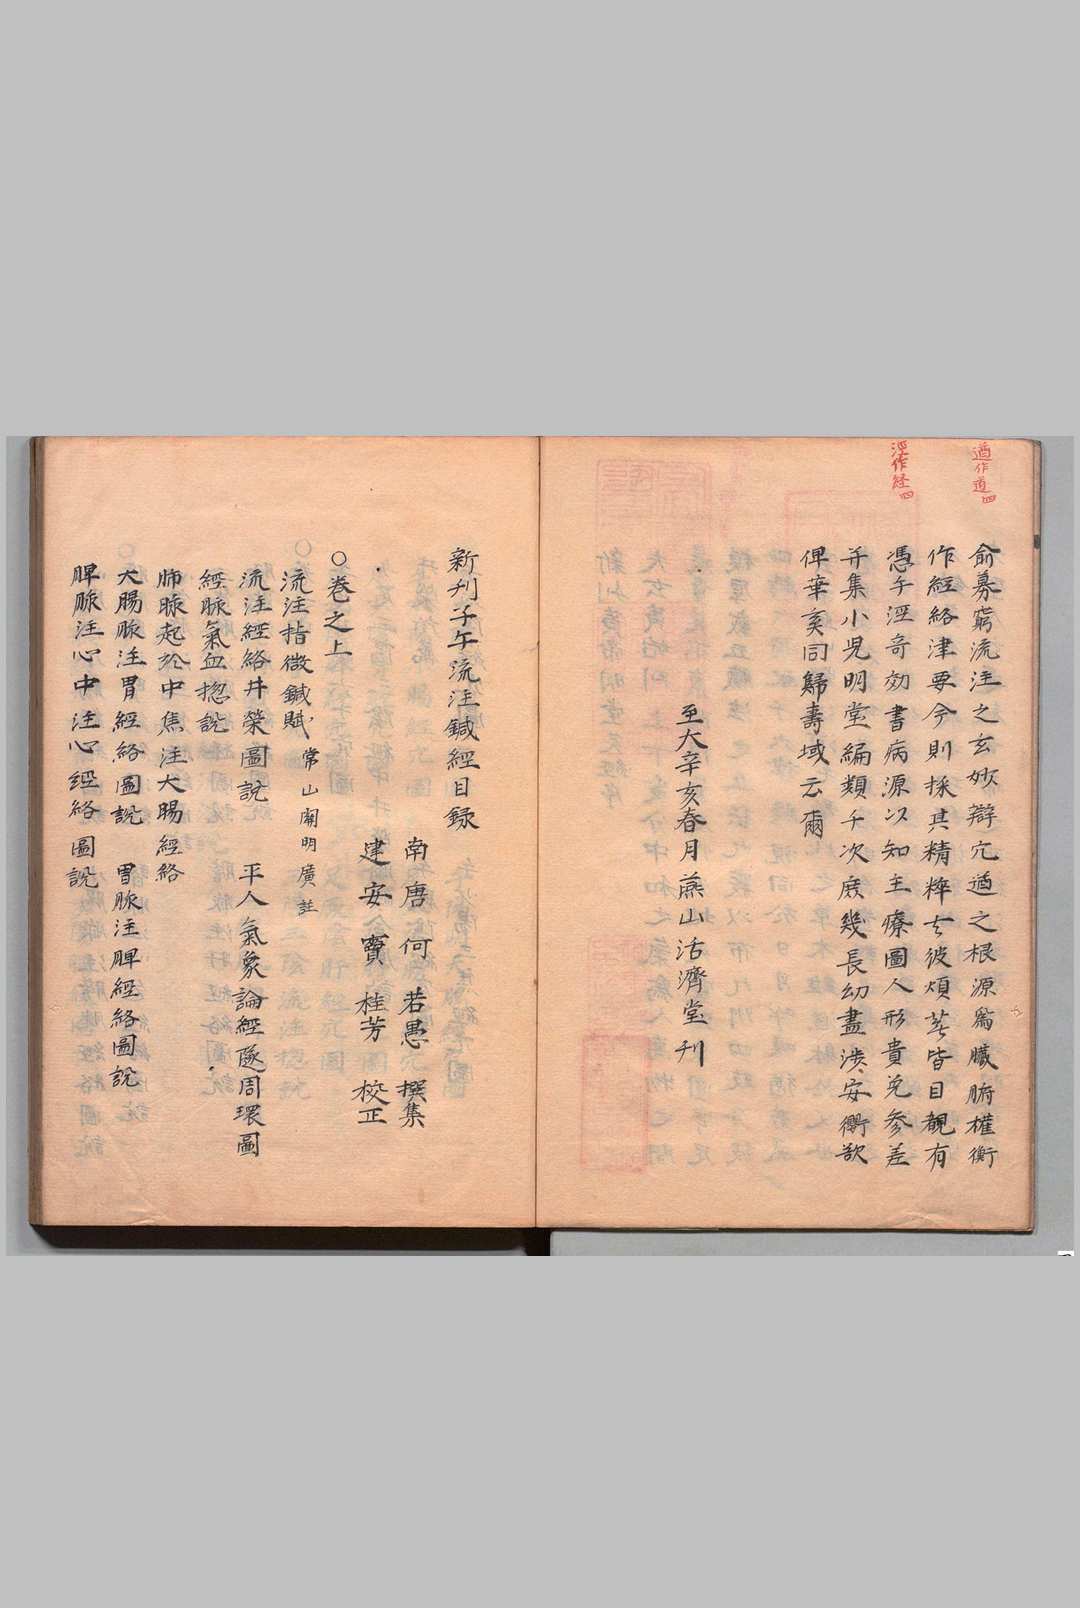 遒作道四
俞募窮流注之玄妙辯穴遒之根源爲臟腑權衡
作經絡津要今則採其精粹去彼煩蕪皆目覩有
淫作経四
憑手淫奇効書病源以知主療圖人形貴免參差
并集小児明堂編類于次庻幾長幼盡渉安衢歘
俾華夷同歸壽域云爾
至大辛亥春月燕山活濟堂刊
新刊子午流注鍼經目録
南唐何若愚撰集
建安竇桂芳校正
○巻之上
流注指微鍼賦 常山閻明廣註
流注經絡井榮圖説 平人氣象論經隧周環圖
經脈氣血揔説
肺脉起於中焦注大腸經絡
大腸脈注胃經絡圖説 胃脉注脾經絡圖説
脾脈注心中注心經絡圖説